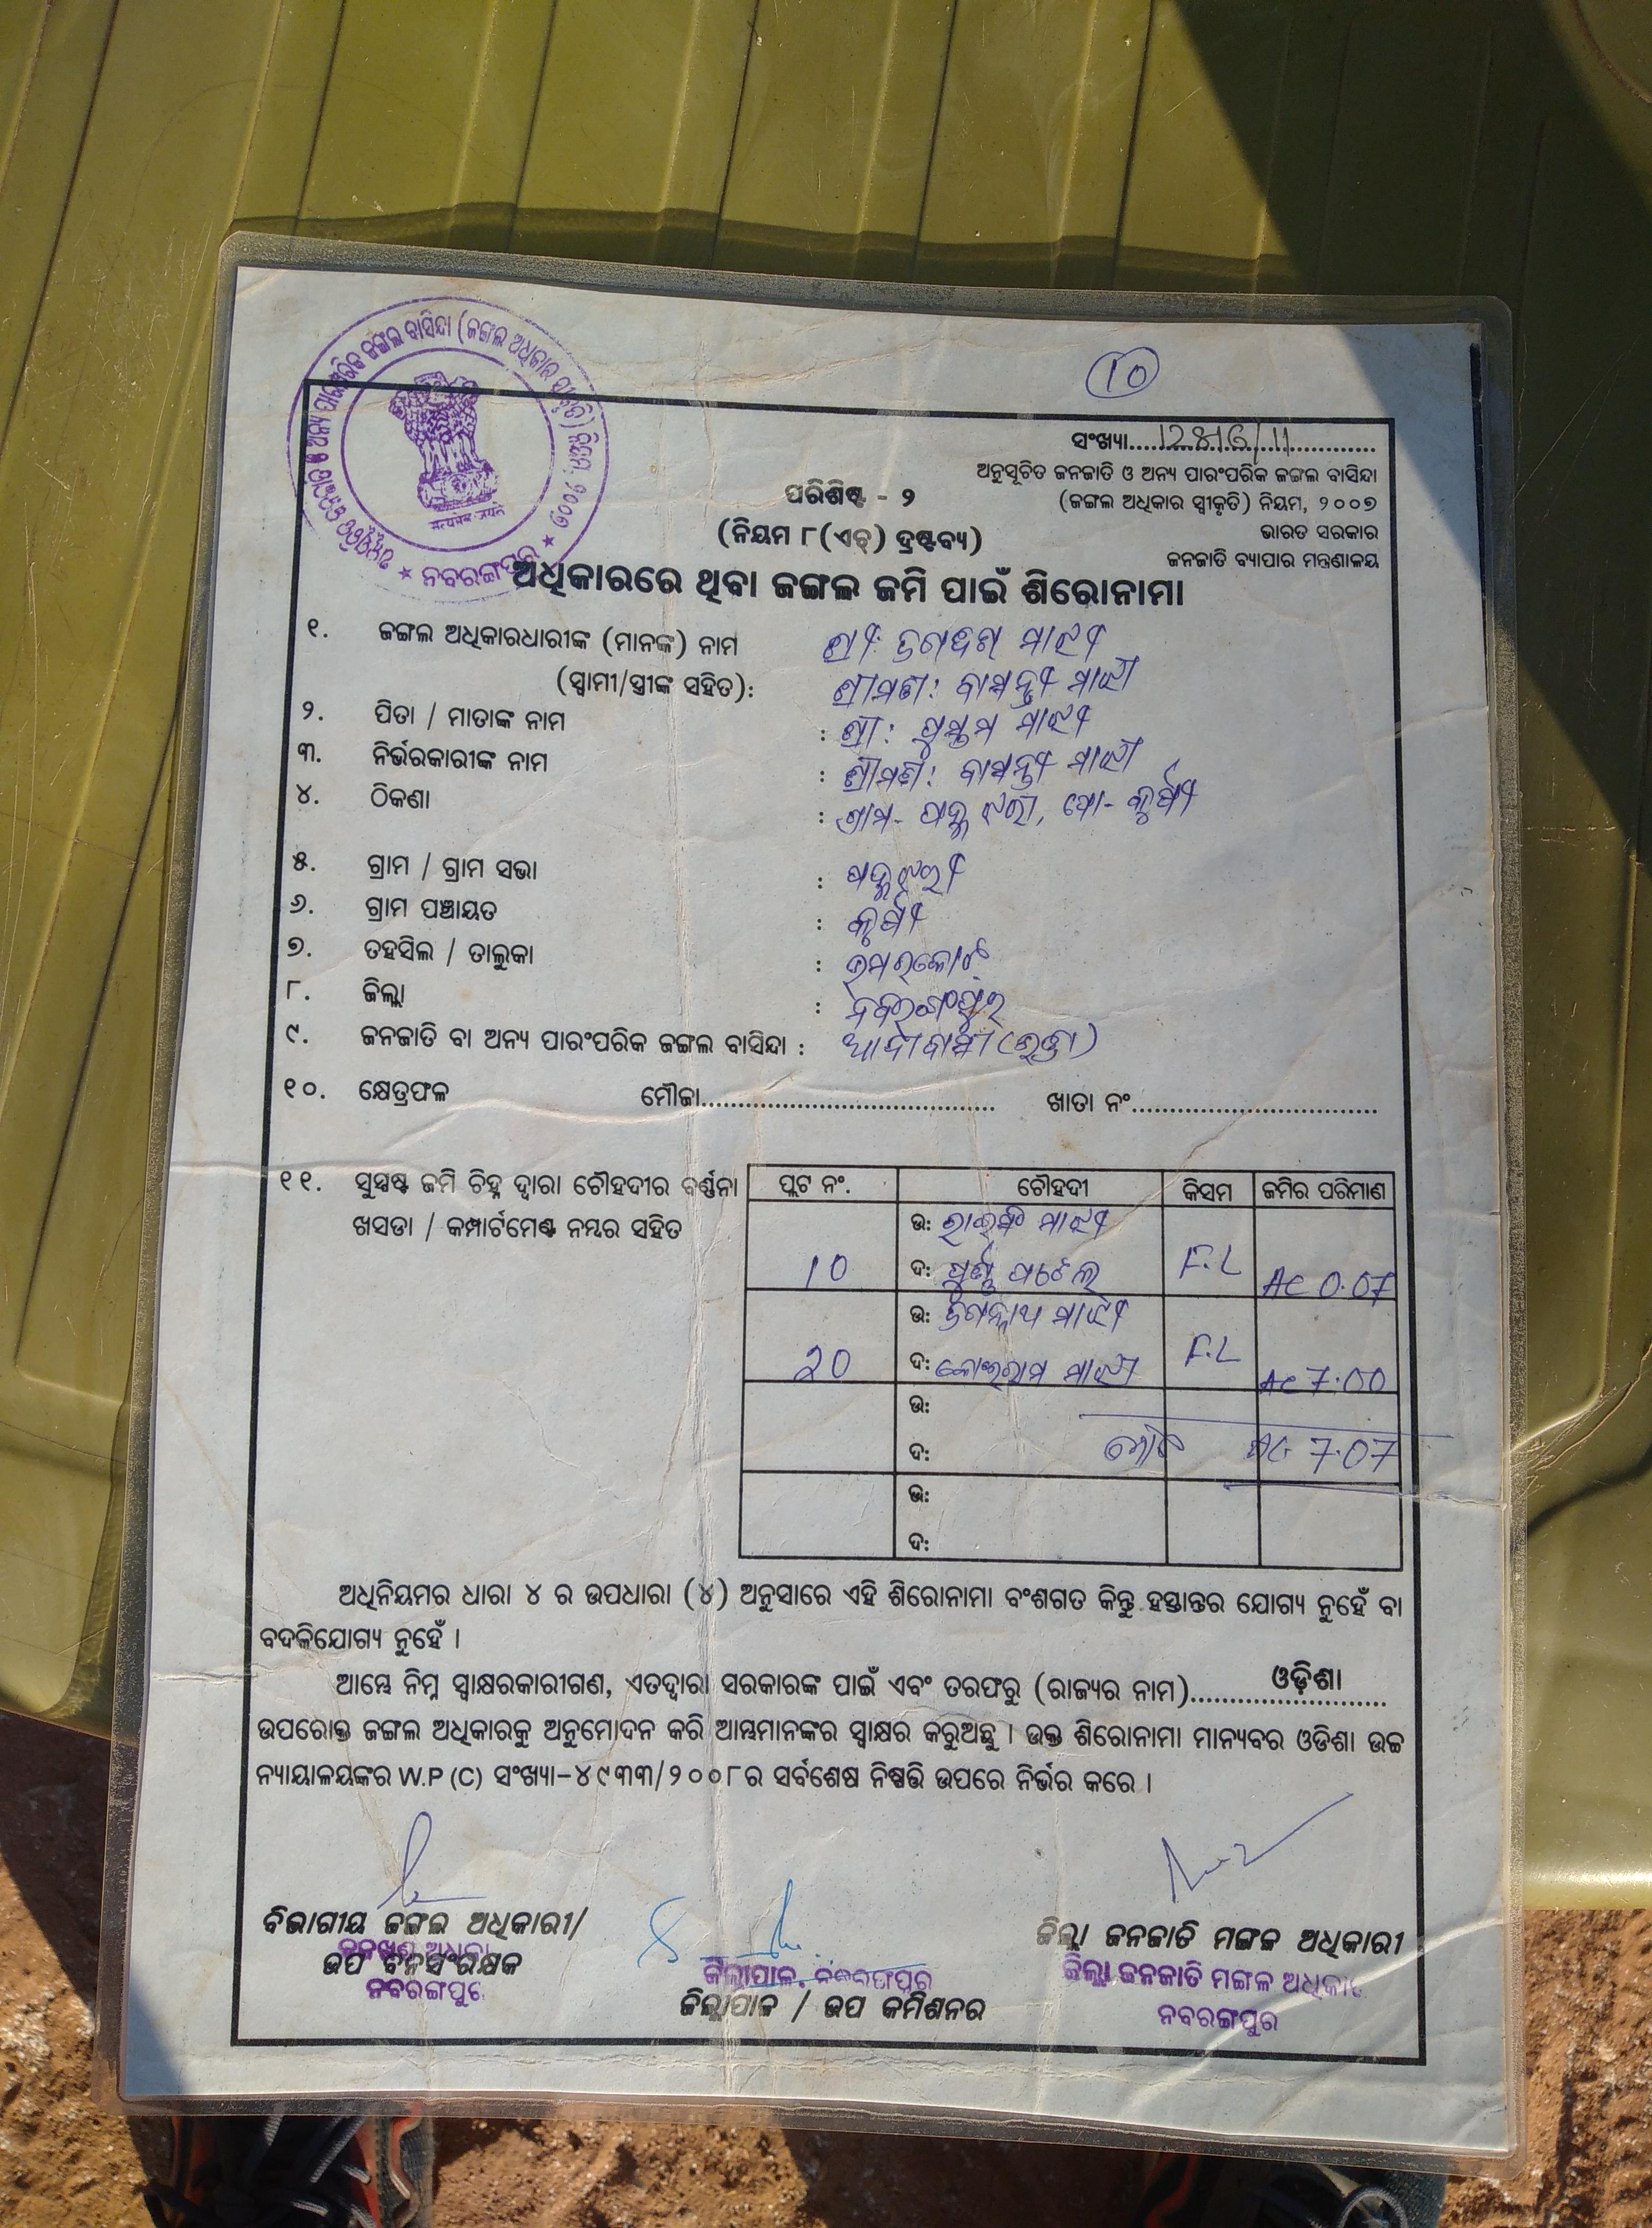 10
ସଂଖ୍ୟା
ଅନୁସୂଚିତ ଜନଜାତି ଓ ଅନ୍ୟ ପାରଂପରିକ ଜଙ୍ଗଲ ବାସିନ୍ଦା
ପରିଶିଷ୍ଟ - ୨
(ଜଙ୍ଗଲ ଅଧିକାର ସ୍ୱୀକୃତି) ନିୟମ, ୨୦୦୭
ଭାରତ ସରକାର
(ନିୟମ ୮(ଏଚ୍) ଦ୍ରଷ୍ଟବ୍ୟ)
ଜନଜାତି ବ୍ୟାପାର ମନ୍ତ୍ରଣାଳୟ
ଅଧିକାରରେ ଥିବା ଜଙ୍ଗଲ ଜମି ପାଇଁ ଶିରୋନାମା
୧. ଜଙ୍ଗଲ ଅଧିକାରଧାରୀଙ୍କ (ମାନଙ୍କ) ନାମ ଶ୍ରୀ: ମାଝୀ
(ସ୍ୱାମୀ/ସ୍ତ୍ରୀଙ୍କ ସହିତ): ଶ୍ରୀମତୀ: ବାସନ୍ତୀ ମାଝୀ
୨. ପିତା / ମାତାଙ୍କ ନାମ : ଶ୍ରୀ: ମାଝୀ
୩. ନିର୍ଭରକାରୀଙ୍କ ନାମ : ଶ୍ରୀମତୀ: ବାସନ୍ତୀ ମାଝୀ
୪. ଠିକଣା : ଗ୍ରାମ-
୫. ଗ୍ରାମ / ଗ୍ରାମ ସଭା :
୬. ଗ୍ରାମ ପଞ୍ଚାୟତ :
୭. ତହସିଲ / ତାଲୁକା : ଉମରକୋଟ
୮. ଜିଲ୍ଲା : ନବରଂଗପୁର
୯. ଜନଜାତି ବା ଅନ୍ୟ ପାରଂପରିକ ଜଙ୍ଗଲ ବାସିନ୍ଦା : ଆଦୀବାସୀ
୧୦. କ୍ଷେତ୍ରଫଳ ମୌଜା ଖାତା ନଂ
୧୧. ସୁସ୍ପଷ୍ଟ ଜମି ଚିହ୍ନ ଦ୍ୱାରା ଚୌହଦୀର ବର୍ଣ୍ଣନା
ଖସଡା / କମ୍ପାର୍ଟମେଣ୍ଟ ନମ୍ବର ସହିତ
ପ୍ଲଟ ନଂ. ଚୌହଦୀ କିସମ ଜମିର ପରିମାଣ
ଉ: ମାଝୀ
10 ଦ: ପଟେଲ F.L AC 0.07
ଉ: ଜଗନ୍ନାଥ ମାଝୀ
20 ଦ: ମାଝୀ F.L AC 7.00
ଉ:
ଦ: ମୋଟ AC 7.07
ଉ:
ଦ:
ଅଧିନିୟମର ଧାରା ୪ ର ଉପଧାରା (୪) ଅନୁସାରେ ଏହି ଶିରୋନାମା ବଂଶଗତ କିନ୍ତୁ ହସ୍ତାନ୍ତର ଯୋଗ୍ୟ ନୁହେଁ ବା
ବଦଳିଯୋଗ୍ୟ ନୁହେଁ ।
ଆମ୍ଭେ ନିମ୍ନ ସ୍ୱାକ୍ଷରକାରୀଗଣ, ଏତଦ୍ଦ୍ୱାରା ସରକାରଙ୍କ ପାଇଁ ଏବଂ ତରଫରୁ (ରାଜ୍ୟର ନାମ) ଓଡ଼ିଶା
ଉପରୋକ୍ତ ଜଙ୍ଗଲ ଅଧିକାରକୁ ଅନୁମୋଦନ କରି ଆମ୍ଭମାନଙ୍କର ସ୍ୱାକ୍ଷର କରୁଅଛୁ । ଉକ୍ତ ଶିରୋନାମା ମାନ୍ୟବର ଓଡିଶା ଉଚ୍ଚ
ନ୍ୟାୟାଳୟଙ୍କର W.P (C) ସଂଖ୍ୟା-୪୯୩୩/୨୦୦୮ର ସର୍ବଶେଷ ନିଷ୍ପତ୍ତି ଉପରେ ନିର୍ଭର କରେ ।
ବିଭାଗୀୟ ଜଙ୍ଗଲ ଅଧିକାରୀ/
ଉପ ବନସଂରକ୍ଷକ
ନବରଙ୍ଗପୁର
ଜିଲ୍ଲାପାଳ, ନବରଙ୍ଗପୁର
ଜିଲ୍ଲାପାଳ / ଉପ କମିଶନର
ଜିଲ୍ଲା ଜନଜାତି ମଙ୍ଗଳ ଅଧିକାରୀ
ଜିଲ୍ଲା ଜନଜାତି ମଙ୍ଗଳ ଅଧିକାରୀ
ନବରଙ୍ଗପୁର